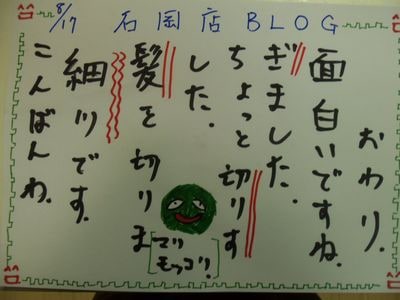 8/17 石岡店 BLOG
こんばんわ。
細川です。
髪を切りま
した。
ちょっと切りす
ぎました。
面白いですね。
おわり。
マリ
モッコリ。